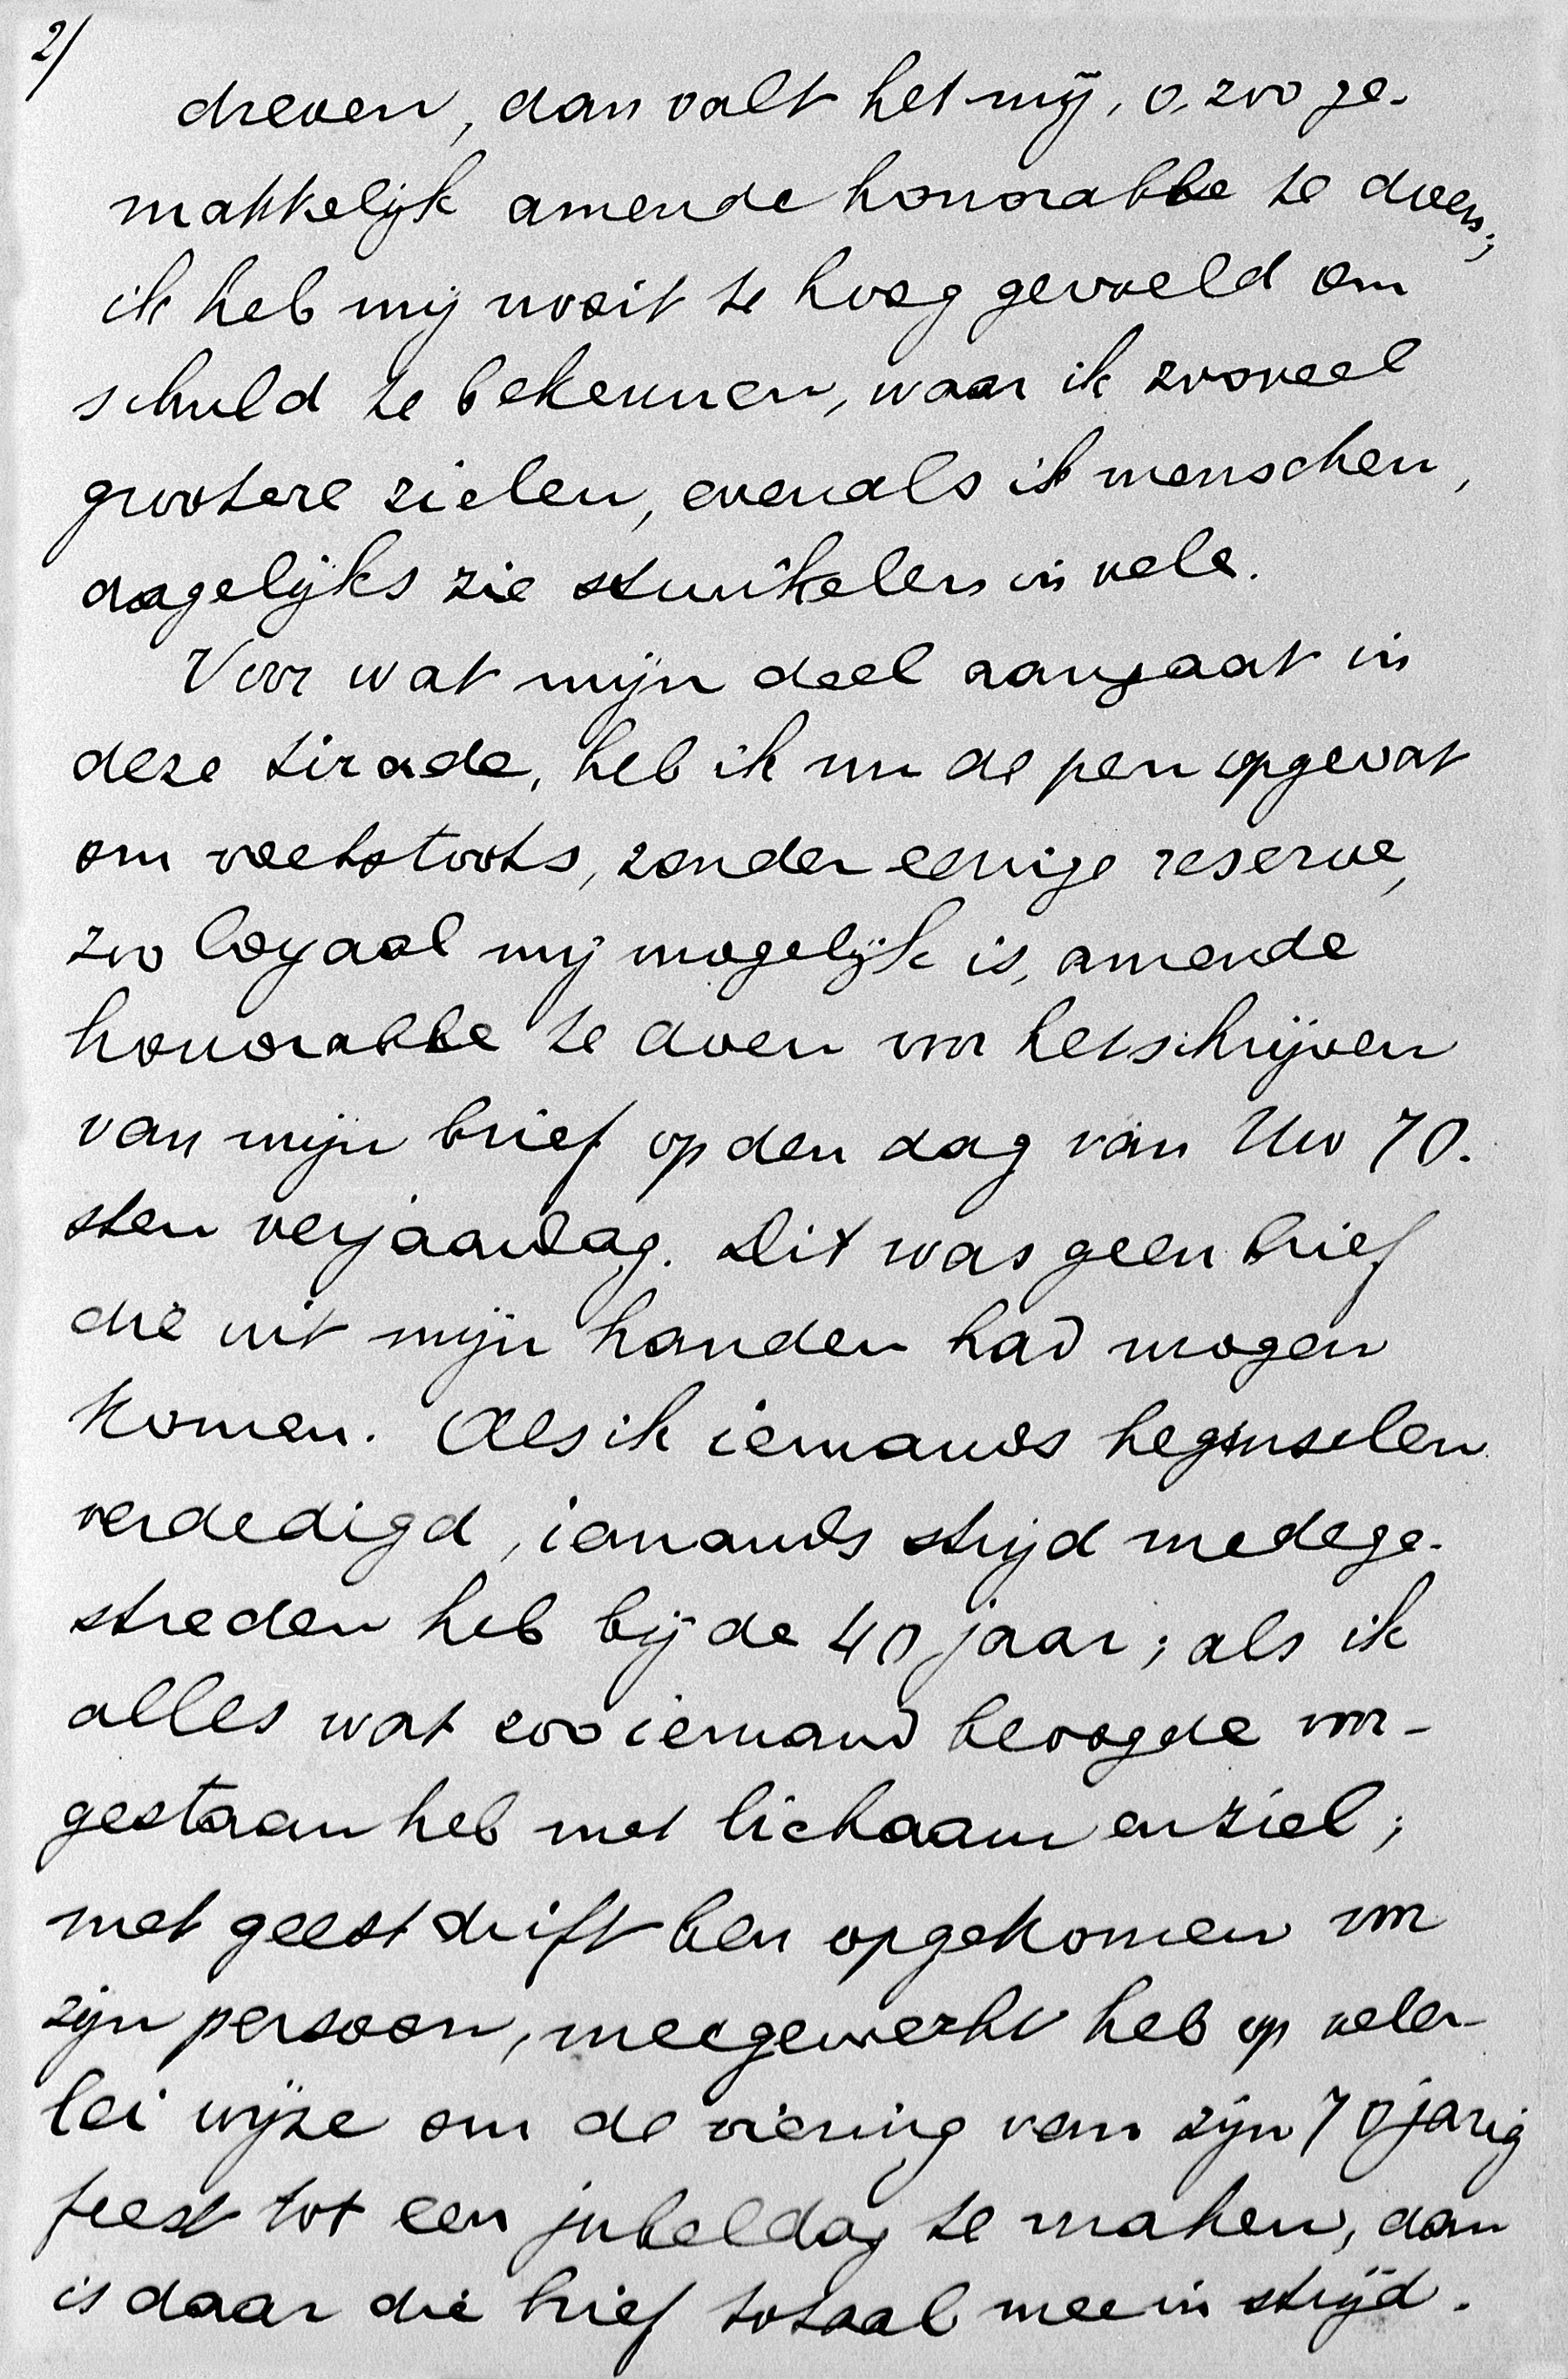 2/
dreven, dan valt het mij, o, zoo ge-
makkelijk amende honorable te doen;
ik heb mij nooit te hoog gevoeld om
schuld te bekennen, waar ik zooveel
grootere zielen, evenals ik menschen,
dagelijks zie struikelen in vele.
Voor wat mijn deel aangaat in
deze tirade, heb ik nu de pen opgevat
om voetstoots, zonder eenige reserve,
zoo loyaal mij mogelijk is, amende
honorable te doen voor het schrijven
van mijn brief op den dag van Uw 70-
sten verjaardag. Dit was geen brief
die uit mijn handen had mogen
komen. Als ik iemands beginselen
verdedigd, iemands strijd medege-
streden heb bij de 40 jaar; als ik
alles wat zoo iemand beoogde voor-
gestaan heb met lichaam en ziel;
met geestdrift ben opgekomen voor
zijn persoon, meegewerkt heb op veler-
lei wijze om de viering van zijn 70 jarig
feest tot een jubeldag te maken, dan
is daar die brief totaal mee in strijd.